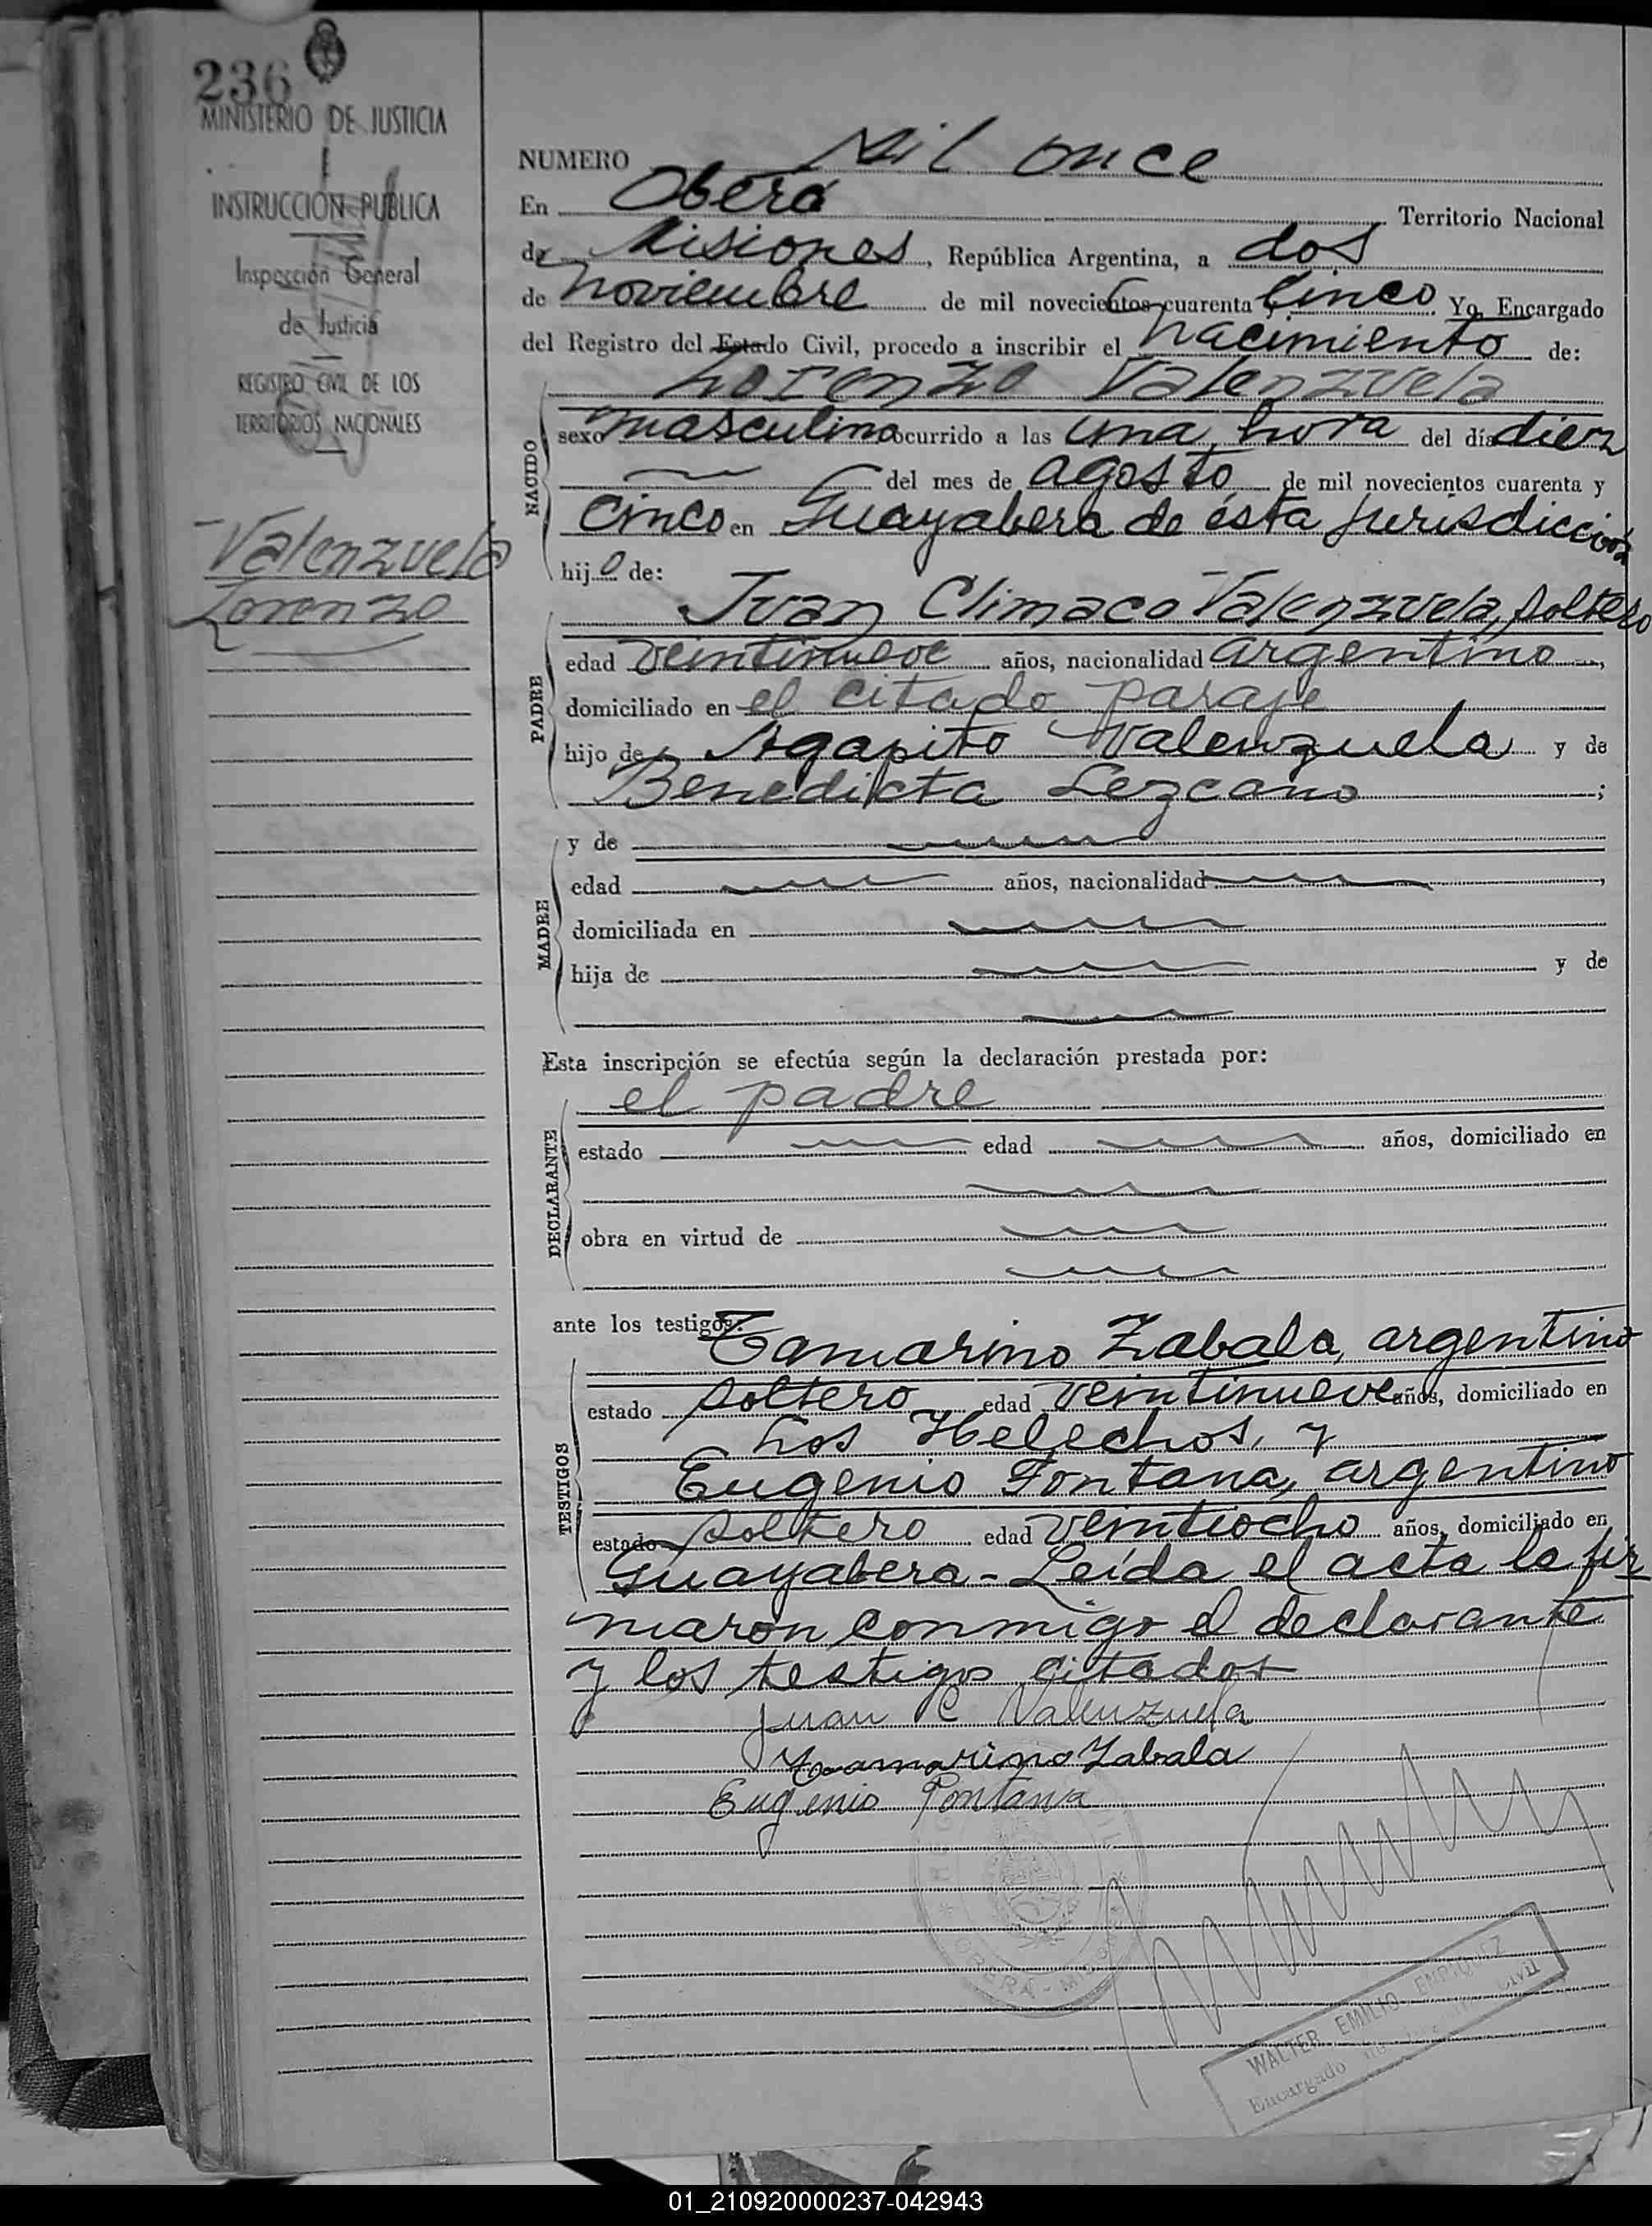 236
MINISTERIO DE JUSTICIA
INSTRUCCION PUBLICA
Inspección General
de Justicia
REGISTRO CIVIL DE LOS
TERRITORIOS NACIONALES
Valenzuela
Lorenzo
NUMERO Mil once
En Oberá Territorio Nacional
de Misiones, República Argentina, a dos
de noviembre de mil novecientos cuarenta y cinco. Yo, Encargado
del Registro del Estado Civil, procedo a inscribir el nacimiento de:
Lorenzo Valenzuela
NACIDO
sexo masculino ocurrido a las una hora del día diez
del mes de agosto de mil novecientos cuarenta y
cinco en Guayabera de ésta jurisdicción
hijo de:
Juan Climaco Valenzuela, soltero
PADRE
edad veintinueve años, nacionalidad argentino,
domiciliado en el citado paraje
hijo de Agapito Valenzuela y de
Benedicta Lezcano ;
MADRE
y de
edad años, nacionalidad ,
domiciliada en
hija de y de
Esta inscripción se efectúa según la declaración prestada por:
el padre
DECLARANTE
estado edad años, domiciliado en
obra en virtud de
ante los testigos:
Tamarino Zabala, argentino
TESTIGOS
estado soltero edad veintinueve años, domiciliado en
Los Helechos, y
Eugenio Fontana, argentino
estado soltero edad veintiocho años, domiciliado en
Guayabera - Leída el acta la fir
maron conmigo el declarante
y los testigos citados
Juan C Valenzuela
Tamarino Zabala
Eugenio Fontana
OBERÁ - MISIONES
WALTER EMILIO ENRIQUEZ
Encargado Civil
01_210920000237-042943